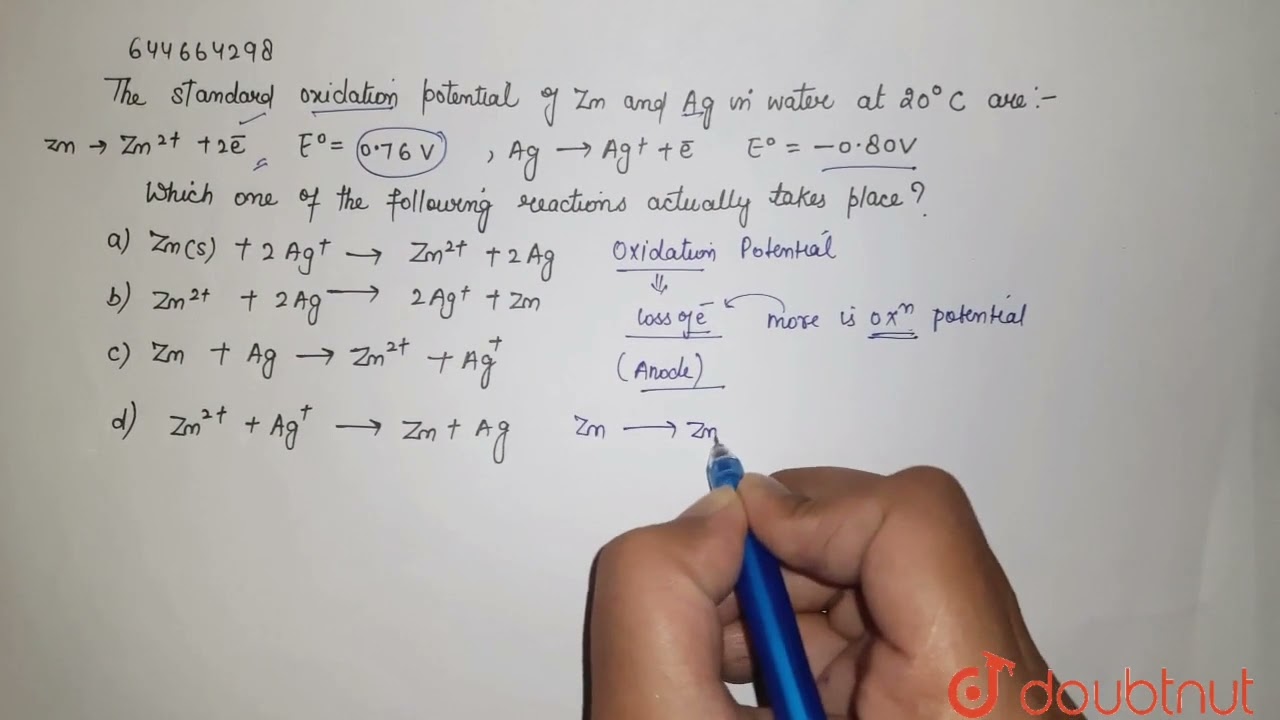 644664298
The standard oxidation potential of Zn and Ag in water at 20°C are:-
Zn → Zn²⁺ + 2e̅ E° = 0.76 V , Ag → Ag⁺ + e̅ E° = -0.80V
Which one of the following reactions actually takes place?
a) Zn(s) + 2Ag⁺ → Zn²⁺ + 2Ag
b) Zn²⁺ + 2Ag → 2Ag⁺ + Zn
c) Zn + Ag → Zn²⁺ + Ag⁺
d) Zn²⁺ + Ag⁺ → Zn + Ag
Oxidation Potential
⇓
loss of e̅ more is oxⁿ potential
(Anode)
Zn → Zn
doubtnut